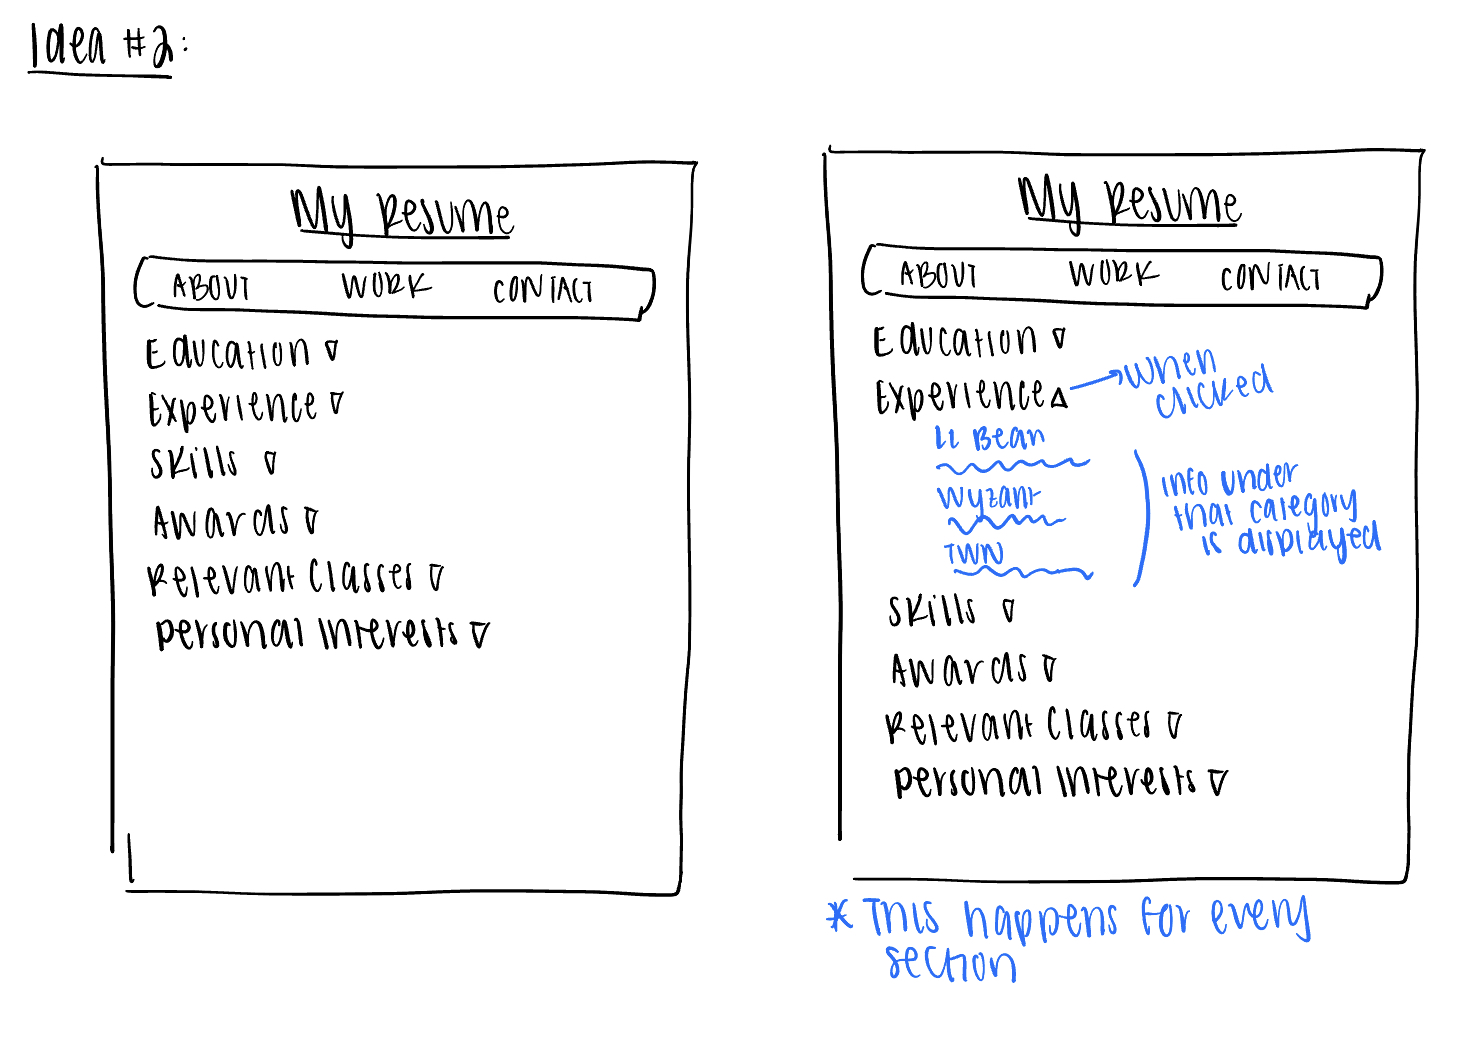 Idea #2:
My Resume
ABOUT WORK CONTACT
Education
Experience
Skills
Awards
Relevant Classes
Personal Interests
My Resume
ABOUT WORK CONTACT
Education
Experience
when
clicked
LL Bean
Wyzant
TWN
info under
that category
is displayed
Skills
Awards
Relevant Classes
Personal Interests
* This happens for every
section